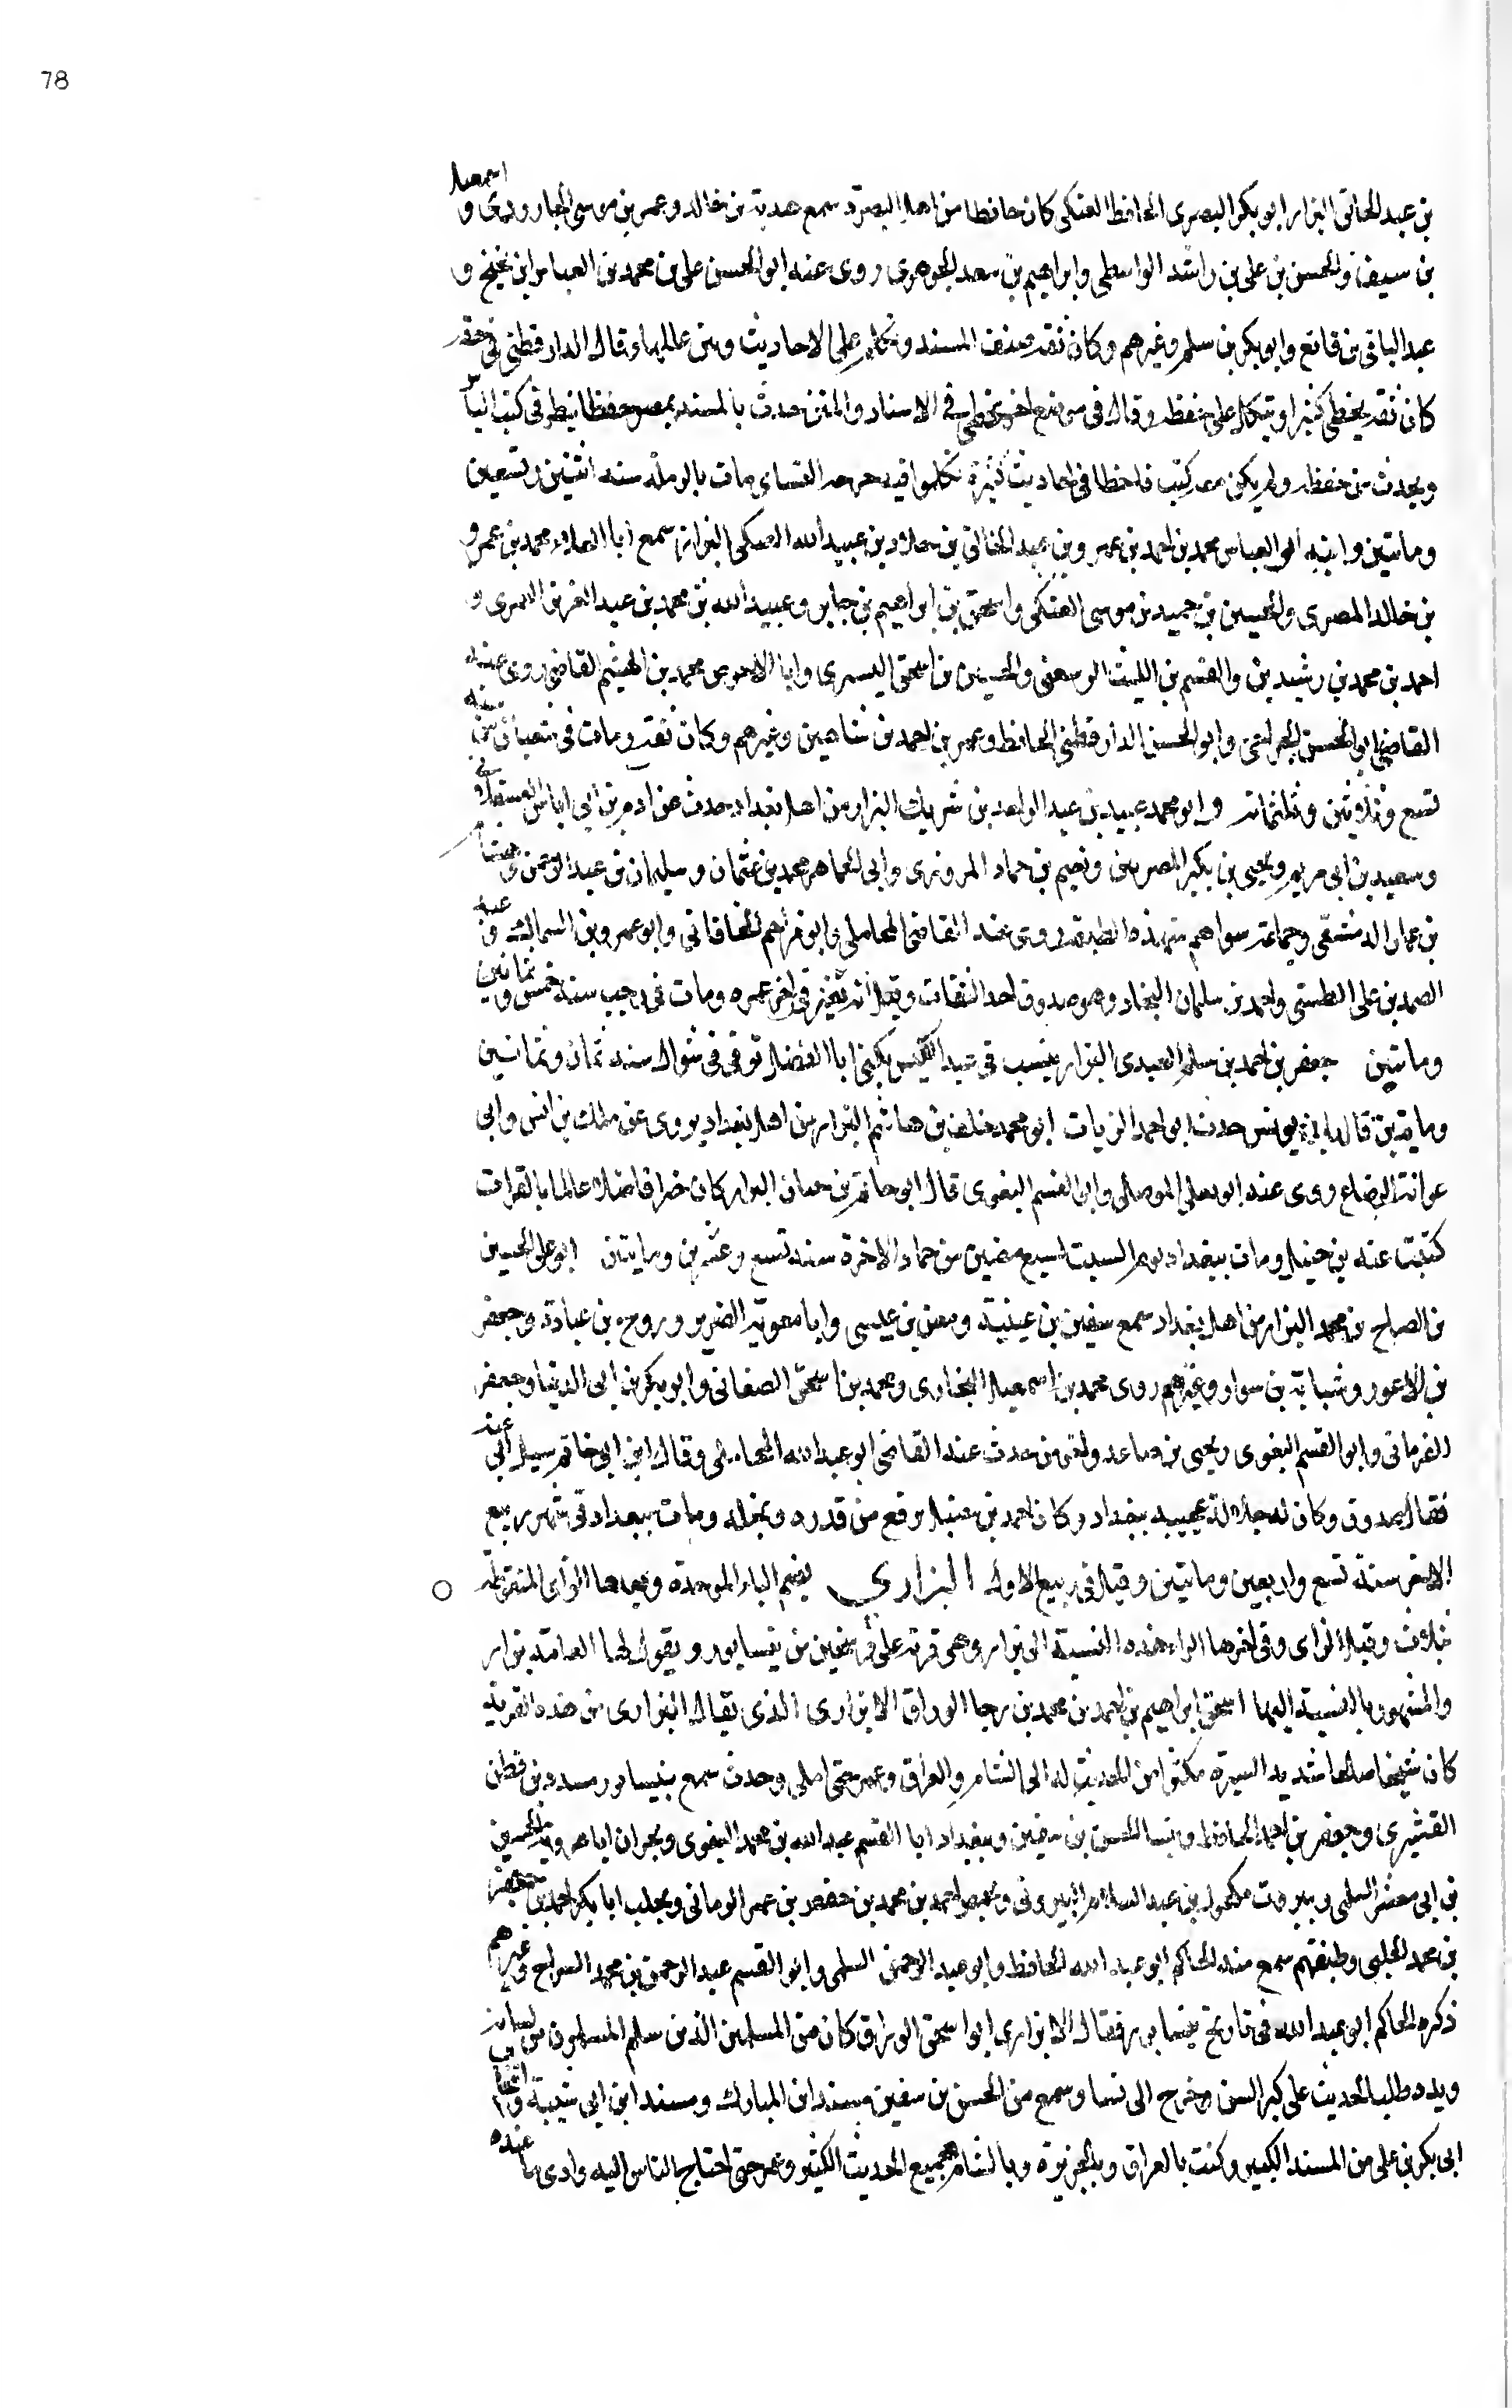 78
بن عبد الخالق البزار ابو بكر البصرى الحافظ العتكى كان حافظا من اهل البصرة سمع هدبة بن خالد وعمر بن موسى الجارودى و اسمعيل
بن سيف والحسن بن على بن راشد الواسطى وابراهيم بن سعد الجوهرى روى عنه ابو الحسن على بن محمد بن العباس ابن نجيح و
عبد الباقى بن قانع وابو بكر بن سلم وغيرهم وكان ثقة صنف المسند وتكلم على الاحاديث وبين عللها وقال الدارقطنى فى حقه
كان ثقة يخطى كثيرا ويتكل على حفظه وقال فى موضع اخر يخطى فى الاسناد والمتن حدث بالمسند بمصر حفظا ينظر فى كتب الناس
ويحدث من حفظه ولم يكن معه كتب فاخطا فى احاديث كثيرة تكلموا فيه جرحه النساى مات بالرملة سنه اثنين وتسعين
وماتين وابنه ابو العباس محمد بن احمد بن عمرو بن عبد الخالق بن خلاد بن عبيد الله العتكى البزار سمع ابا العلاء محمد بن عمرو
بن خالد المصرى والحسين بن حميد بن موسى العتكى واسحق بن ابراهيم بن جابر وعبيد الله بن محمد بن عبد العزيز العمرى و
احمد بن محمد بن رشيد بن والقسم بن الليث الرسعنى والحسين بن اسحق التسترى وابا الاحوص محمد بن الهيثم القاضى روى عنه
القاضى ابو الحسن الجراحى وابو الحسن الدارقطنى الحافظ وعمر بن احمد بن شاهين وغيرهم وكان ثقة ومات فى شعبان سنه
تسع وثلاثين وثلثمائة وابو محمد عبيد بن عبد الواحد بن شريك البزار من اهل بغداد حدث عن ادم بن ابى اياس العسقلانى و
وسعيد بن ابى مريم ويحيى بن بكير المصريين ونعيم بن حماد المروزى وابى الجماهر محمد بن عثمان وسليمان بن عبد الرحمن وهشام
بن عمار الدمشقى وجماعة سواهم من هذه الطبقة روى عنه القاضى المحاملى وابو مزاحم الخاقانى وابو عمرو بن السماك و عبد
الصمد بن على الطستى واحمد بن سلمان النجاد وهو صدوق احد الثقات وقيل انه تغير فى اخر عمره ومات فى رجب سنة خمس وثمانين
وماتين جعفر بن احمد بن سلم العبدى البزار ينسب فى عبد القيس يكنى ابا الفضل توفى فى شوال سنه ثمان وثمانين
وماتين قاله ابن يونس حدث ابو احمد الزيات ابو محمد خلف بن هاشم البزار من اهل بغداد يروى عن ملك بن انس وابى
عوانة الوضاح روى عنه ابو يعلى الموصلى وابو القسم البغوى قال ابو حاتم بن حبان البزار كان خيرا فاضلا عالما بالقرات
كتبت عنه بن حنبل ومات ببغداد يوم السبت لسبع مضين من جماد الاخرة سنه تسع وعشرين وماتين ابو على الحسين
بن الصباح بن محمد البزار من اهل بغداد سمع سفين بن عيينة ومعن بن عيسى وابا معوية الضرير وروح بن عبادة وجعفر
بن الاعور وشبابة بن سوار وغيرهم روى محمد بن اسمعيل البخارى ومحمد بن اسحق الصغانى وابو بكر بن ابى الدنيا وجعفر
الفرمانى وابو القسم البغوى ويحيى بن صاعد واخر من حدث عنه القاضى ابو عبد الله المحاملى وقال ابن ابى حاتم سيل ابى عنه
فقال صدوق وكان له جلالة عجيبه ببغداد وكان احمد بن حنبل يرفع من قدره ويجله ومات ببغداد فى شهر ربيع
الاخر سنة تسع واربعين وماتين وقيل فى ربيع الاول البزارى بضم الباء الموحدة وبعدها الزاى المنقوطة
خلاف وقبل الزاى وفى اخرها الراء هذه النسبة الى بزار وهى قرية على فرسخين من نيسابور ويقول لها العامة بزار
والمشهور بالنسبة اليها اسحق ابراهيم بن احمد بن محمد بن رجا الوراق الابزارى الذى يقال البزارى من هذه القرية
كان شيخا صالحا شديد السيرة مكثرا من الحديث له الى الشام والعراق وعمر حتى املى وحدث سمع بنيسابور مسدد بن قطن
القشيرى وجعفر بن احمد الحافظ وبنسا الحسن بن سفين وببغداد ابا القسم عبد الله بن محمد البغوى وبحران ابا عروبة الحسين
بن ابى معشر السلمى وببيروت مكحول بن عبد السلام البيروتى وبحمص احمد بن محمد بن حفص بن عمر الوصابى وبحلب ابا بكر احمد بن جعفر
بن محمد الحلبى وطبقتهم سمع منه الحاكم ابو عبد الله الحافظ وابو عبد الرحمن السلمى وابو القسم عبد الرحمن بن محمد السراج وغيرهم
ذكره الحاكم ابو عبد الله فى تاريخ نيسابور فقال الابزارى ابو اسحق الوراق كان من المسلمين الذين سلم المسلمون من لسانه
ويده طلب الحديث على كبر السن وخرج الى نسا وسمع من الحسن بن سفين مسند ابن المبارك ومسند ابن ابى شيبة و
ابى بكر بن على من المسند الكبير وكتب بالعراق وبالجزيرة وبالشام وجميع الحديث الكثير وعمر حتى احتاج الناس اليه وادى ما عنده